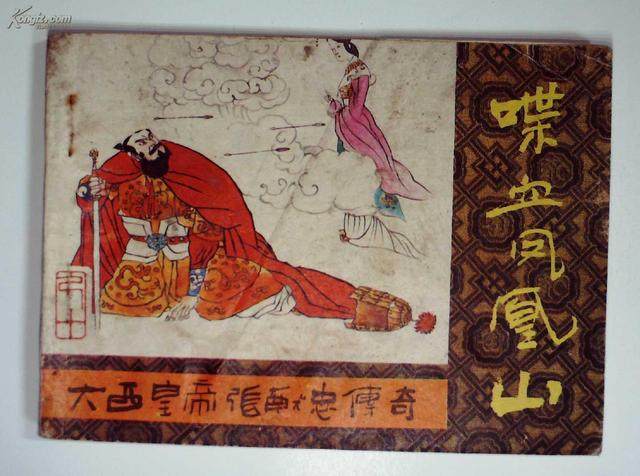 Kongfz.com
喋血凤凰山
大西皇帝張献忠傳奇